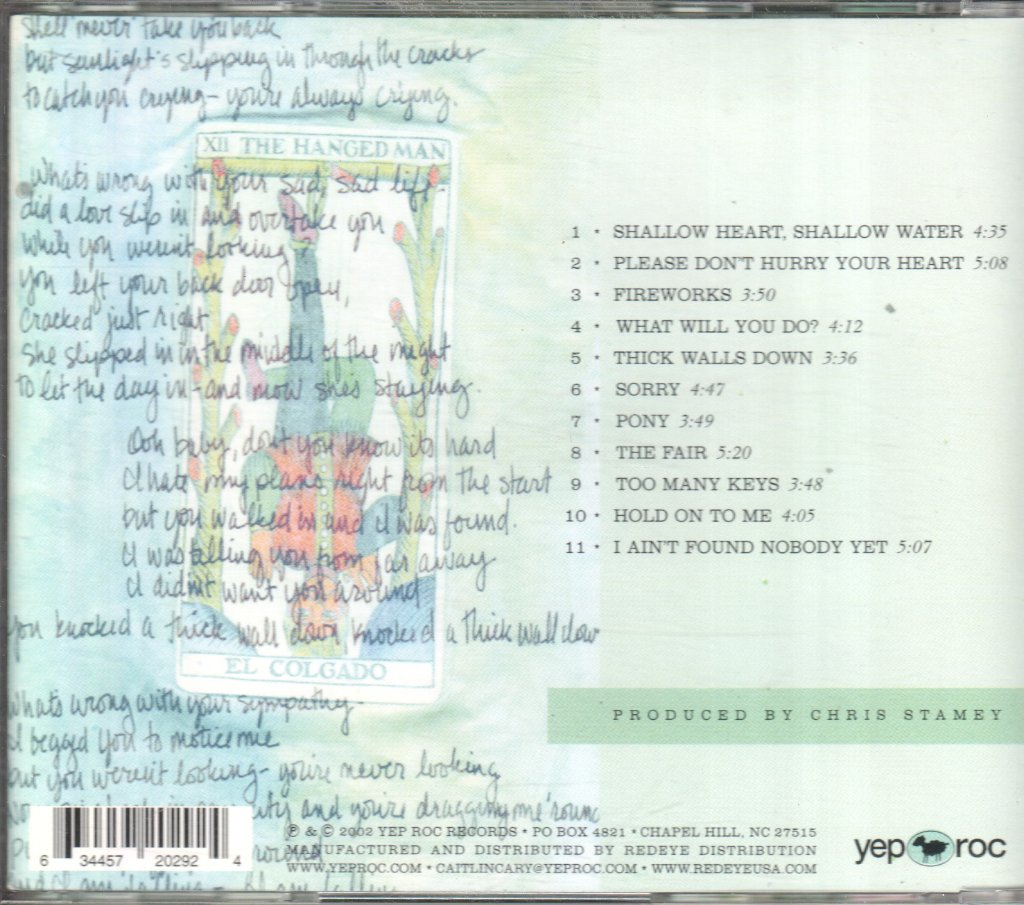 She'll never take you back
but sunlight's slipping in through the cracks
to catch you crying - you're always crying.
XII THE HANGED MAN
whats wrong with your sad, sad life -
did a love slip in and overtake you
while you werent looking?
you left your back door open,
cracked just right
she slipped in in the middle of the night
to let the day in - and now shes staying.
Ooh baby, dont you know its hard
I hate my plans right from the start
but you walked in and I was found.
I was telling you from far away
I didnt want you around
you knocked a thick wall down, knocked a thick wall dow
EL COLGADO
whats wrong with your sympathy -
I begged you to notice me
but you werent looking - you're never looking
and you're dragging me 'round
1 * SHALLOW HEART, SHALLOW WATER 4:35
2 * PLEASE DON'T HURRY YOUR HEART 5:08
3 * FIREWORKS 3:50
4 * WHAT WILL YOU DO? 4:12
5 * THICK WALLS DOWN 3:36
6 * SORRY 4:47
7 * PONY 3:49
8 * THE FAIR 5:20
9 * TOO MANY KEYS 3:48
10 * HOLD ON TO ME 4:05
11 * I AIN'T FOUND NOBODY YET 5:07
PRODUCED BY CHRIS STAMEY
6 34457 20292 4
℗ & © 2002 YEP ROC RECORDS * PO BOX 4821 * CHAPEL HILL, NC 27515
MANUFACTURED AND DISTRIBUTED BY REDEYE DISTRIBUTION
WWW.YEPROC.COM * CAITLINCARY@YEPROC.COM * WWW.REDEYEUSA.COM
yep roc